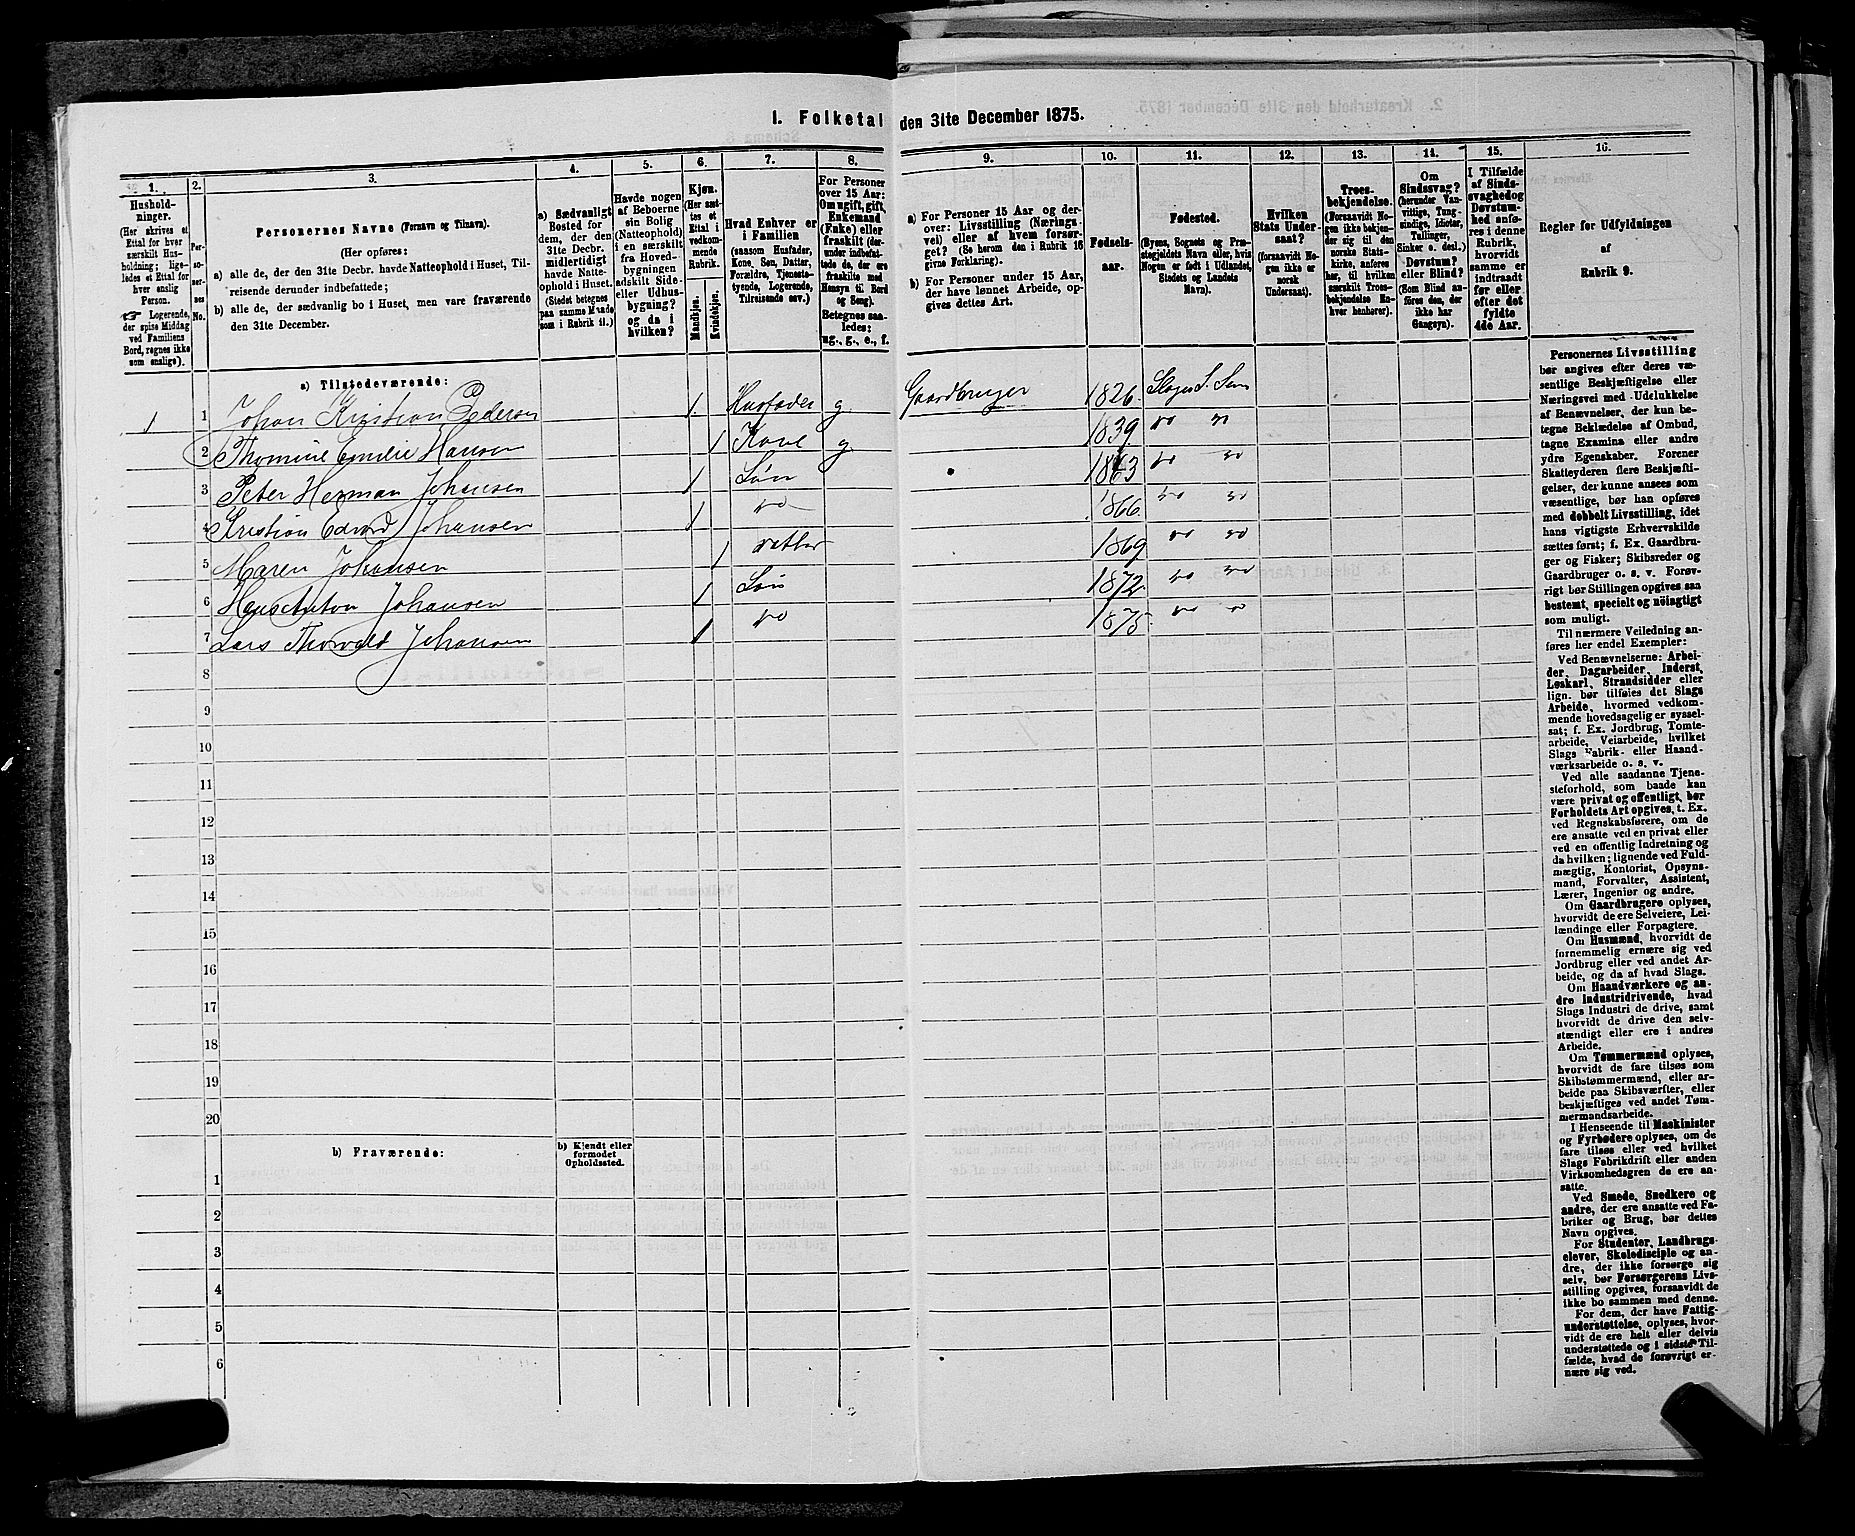 1. Folketal den 31te December 1875.
1. 2. 3. 4. 5. 6. 7. 8. 9. 10. 11. 12. 13. 14. 15. 16.
Hushold-
ninger.
(Her skrives et
Ettal for hver
særskilt Hus-
holdning; lige-
ledes et Ettal for
hver enslig
Person.
☞ Logerende,
der spise Middag
ved Familiens
Bord, regnes ikke
som enslige).
Per-
so-
ner-
nes
No.
Personernes Navne (Fornavn og Tilnavn).
(Her opføres:
a) alle de, der den 31te Decbr. havde Natteophold i Huset, Til-
reisende derunder indbefattede;
b) alle de, der sædvanlig bo i Huset, men vare fraværende
den 31te December.
a) Sædvanligt
Bosted for
dem, der den
31te Decbr.
midlertidigt
havde Natte-
ophold i Huset.
(Stedet betegnes
paa samme Maade
som i Rubrik 11.)
Havde nogen
af Beboerne
sin Bolig
(Natteophold)
i en særskilt
fra Hoved-
bygningen
adskilt Side-
eller Udhus-
bygning?
og da i
hvilken?
Kjøn.
(Her sæt-
tes et
Ettal i
vedkom-
mende
Rubrik.
Mandkjøn.
Kvindekjøn.
Hvad Enhver er
i Familien
(saasom Husfader,
Kone, Søn, Datter,
Forældre, Tjeneste-
tyende, Logerende,
Tilreisende osv.)
For Personer
over 15 Aar:
Om ugift, gift,
Enkemand
(Enke) eller
fraskilt (der-
under indbefat-
tede de, der ere
fraskilte med
Hensyn til Bord
og Seng).
Betegnes saa-
ledes:
ug., g., e., f.
a) For Personer 15 Aar og der-
over: Livsstilling (Nærings-
vei) eller af hvem forsør-
get? (Se herom den i Rubrik 16
givne Forklaring).
b) Personer under 15 Aar,
der have lønnet Arbeide, op-
gives dettes Art.
Fødsels-
aar.
Fødested.
(Byens, Sognets og Præ-
stegjeldets Navn eller, hvis
Nogen er født i Udlandet,
Stedets og Landets
Navn).
Hvilken
Stats Under-
saat?
(forsaavidt No-
gen ikke er
norsk
Undersaat).
Troes-
bekjendelse.
(Forsaavidt No-
gen ikke bekjen-
der sig til den
norske Stats-
kirke, anføres
her, til hvilken
særskilt Troes-
bekjendelse En-
hver henhører).
Om
Sindssvag?
(herunder Van-
vittige, Tung-
sindige, Idioter,
Tullinger,
Sinker o. desl.)
Døvstum?
eller Blind?
(Som Blind an-
føres den, der
ikke har
Gangsyn).
I Tilfælde
af Sinds-
svaghed og
Døvstum-
hed anfø-
res i denne
Rubrik,
hvorvidt
samme er
indtraadt
før eller
efter det
fyldte
4de Aar.
Regler for Udfyldningen
af
Rubrik 9.
a) Tilstedeværende:
1 1 Johan Kristian Pedersen 1. Husfader g. Gaardbruger 1826
2 Thomine Emilie Hansen 1 Kone g 1839 do do
3 Peter Herman Johansen 1 Søn 1863 do do
4 Kristian Edvard Johansen 1 do 1866 do do
5 Maren Johansen 1 datter 1869 do do
6 Hans Anton Johansen 1 Søn 1872 do do
7 Lars Thorvald Johansen 1 do 1875 do do
8
9
10
11
12
13
14
15
16
17
18
19
20
b) Fraværende: b) Kjendt eller
formodet
Opholdssted.
1
2
3
4
5
6
Personernes Livsstilling
bør angives efter deres væ-
sentlige Beskjæftigelse eller
Næringsvei med Udelukkelse
af Benævnelser, der kun be-
tegne Beklædelse af Ombud,
tagne Examina eller andre
ydre Egenskaber. Forener
Skatteyderen flere Beskjæfti-
gelser, der kunne ansees som
væsentlige, bør han opføres
med dobbelt Livsstilling, idet
hans vigtigste Erhvervskilde
sættes først; f. Ex. Gaardbru-
ger og Fisker; Skibsreder og
Gaardbruger o. s. v. Forøv-
rigt bør Stillingen opgives saa
bestemt, specielt og nöiagtigt
som muligt.
Til nærmere Veiledning an-
føres her endel Exempler:
Ved Benævnelserne: Arbei-
der, Dagarbeider, Inderst,
Løskarl, Strandsidder eller
lign. bør tilføies det Slags
Arbeide, hvormed vedkom-
mende hovedsagelig er syssel-
sat; f. Ex. Jordbrug, Tomte-
arbeide, Veiarbeide, hvilket
Slags Fabrik- eller Haand-
værksarbeide o. s. v.
Ved alle saadanne Tjene-
steforhold, som baade kan
være privat og offentligt, bør
Forholdets Art opgives, t. Ex.
ved Regnskabsførere, om de
ere ansatte ved en privat eller
ved en offentlig Indretning og
da hvilken; lignende ved Fuld-
mægtig, Kontorist, Opsyns-
mand, Forvalter, Assistent,
Lærer, Ingeniør og andre.
Om Gaardbrugere oplyses,
hvorvidt de ere Selveiere, Lei-
lændinge eller Forpagtere.
Om Husmænd, hvorvidt de
fornemmelig ernære sig ved
Jordbrug eller ved andet Ar-
beide, og da af hvad Slags.
Om Haandværkere og an-
dre Industridrivende, hvad
Slags Industri de drive, samt
hvorvidt de drive den selv-
stændigt eller ere i andres
Arbeide.
Om Tømmermænd oplyses,
hvorvidt de fare tilsøs som
Skibstømmermænd, eller ar-
beide paa Skibsværfter, eller
beskjæftiges ved andet Tøm-
mermandsarbeide.
I Henseende til Maskinister
og Fyrbødere oplyses, om de
fare tilsøs eller ved hvilket
Slags Fabrikdrift eller anden
Virksomhedsgren de ere an-
satte.
Ved Smede, Snedkere og
andre, der ere ansatte ved Fa-
briker og Brug, bør dettes
Navn opgives.
For Studenter, Landbrugs-
elever, Skoledisciple og an-
dre, der ikke forsørge sig
selv, bør Forsørgerens Livs-
stilling opgives, forsaavidt de
ikke bo sammen med denne.
For dem, der have Fattig-
understøttelse, oplyses, hvor-
vidt de ere helt eller delvis
understøttede og i sidste Til-
fælde, hvad de forøvrigt er-
nære sig ved.